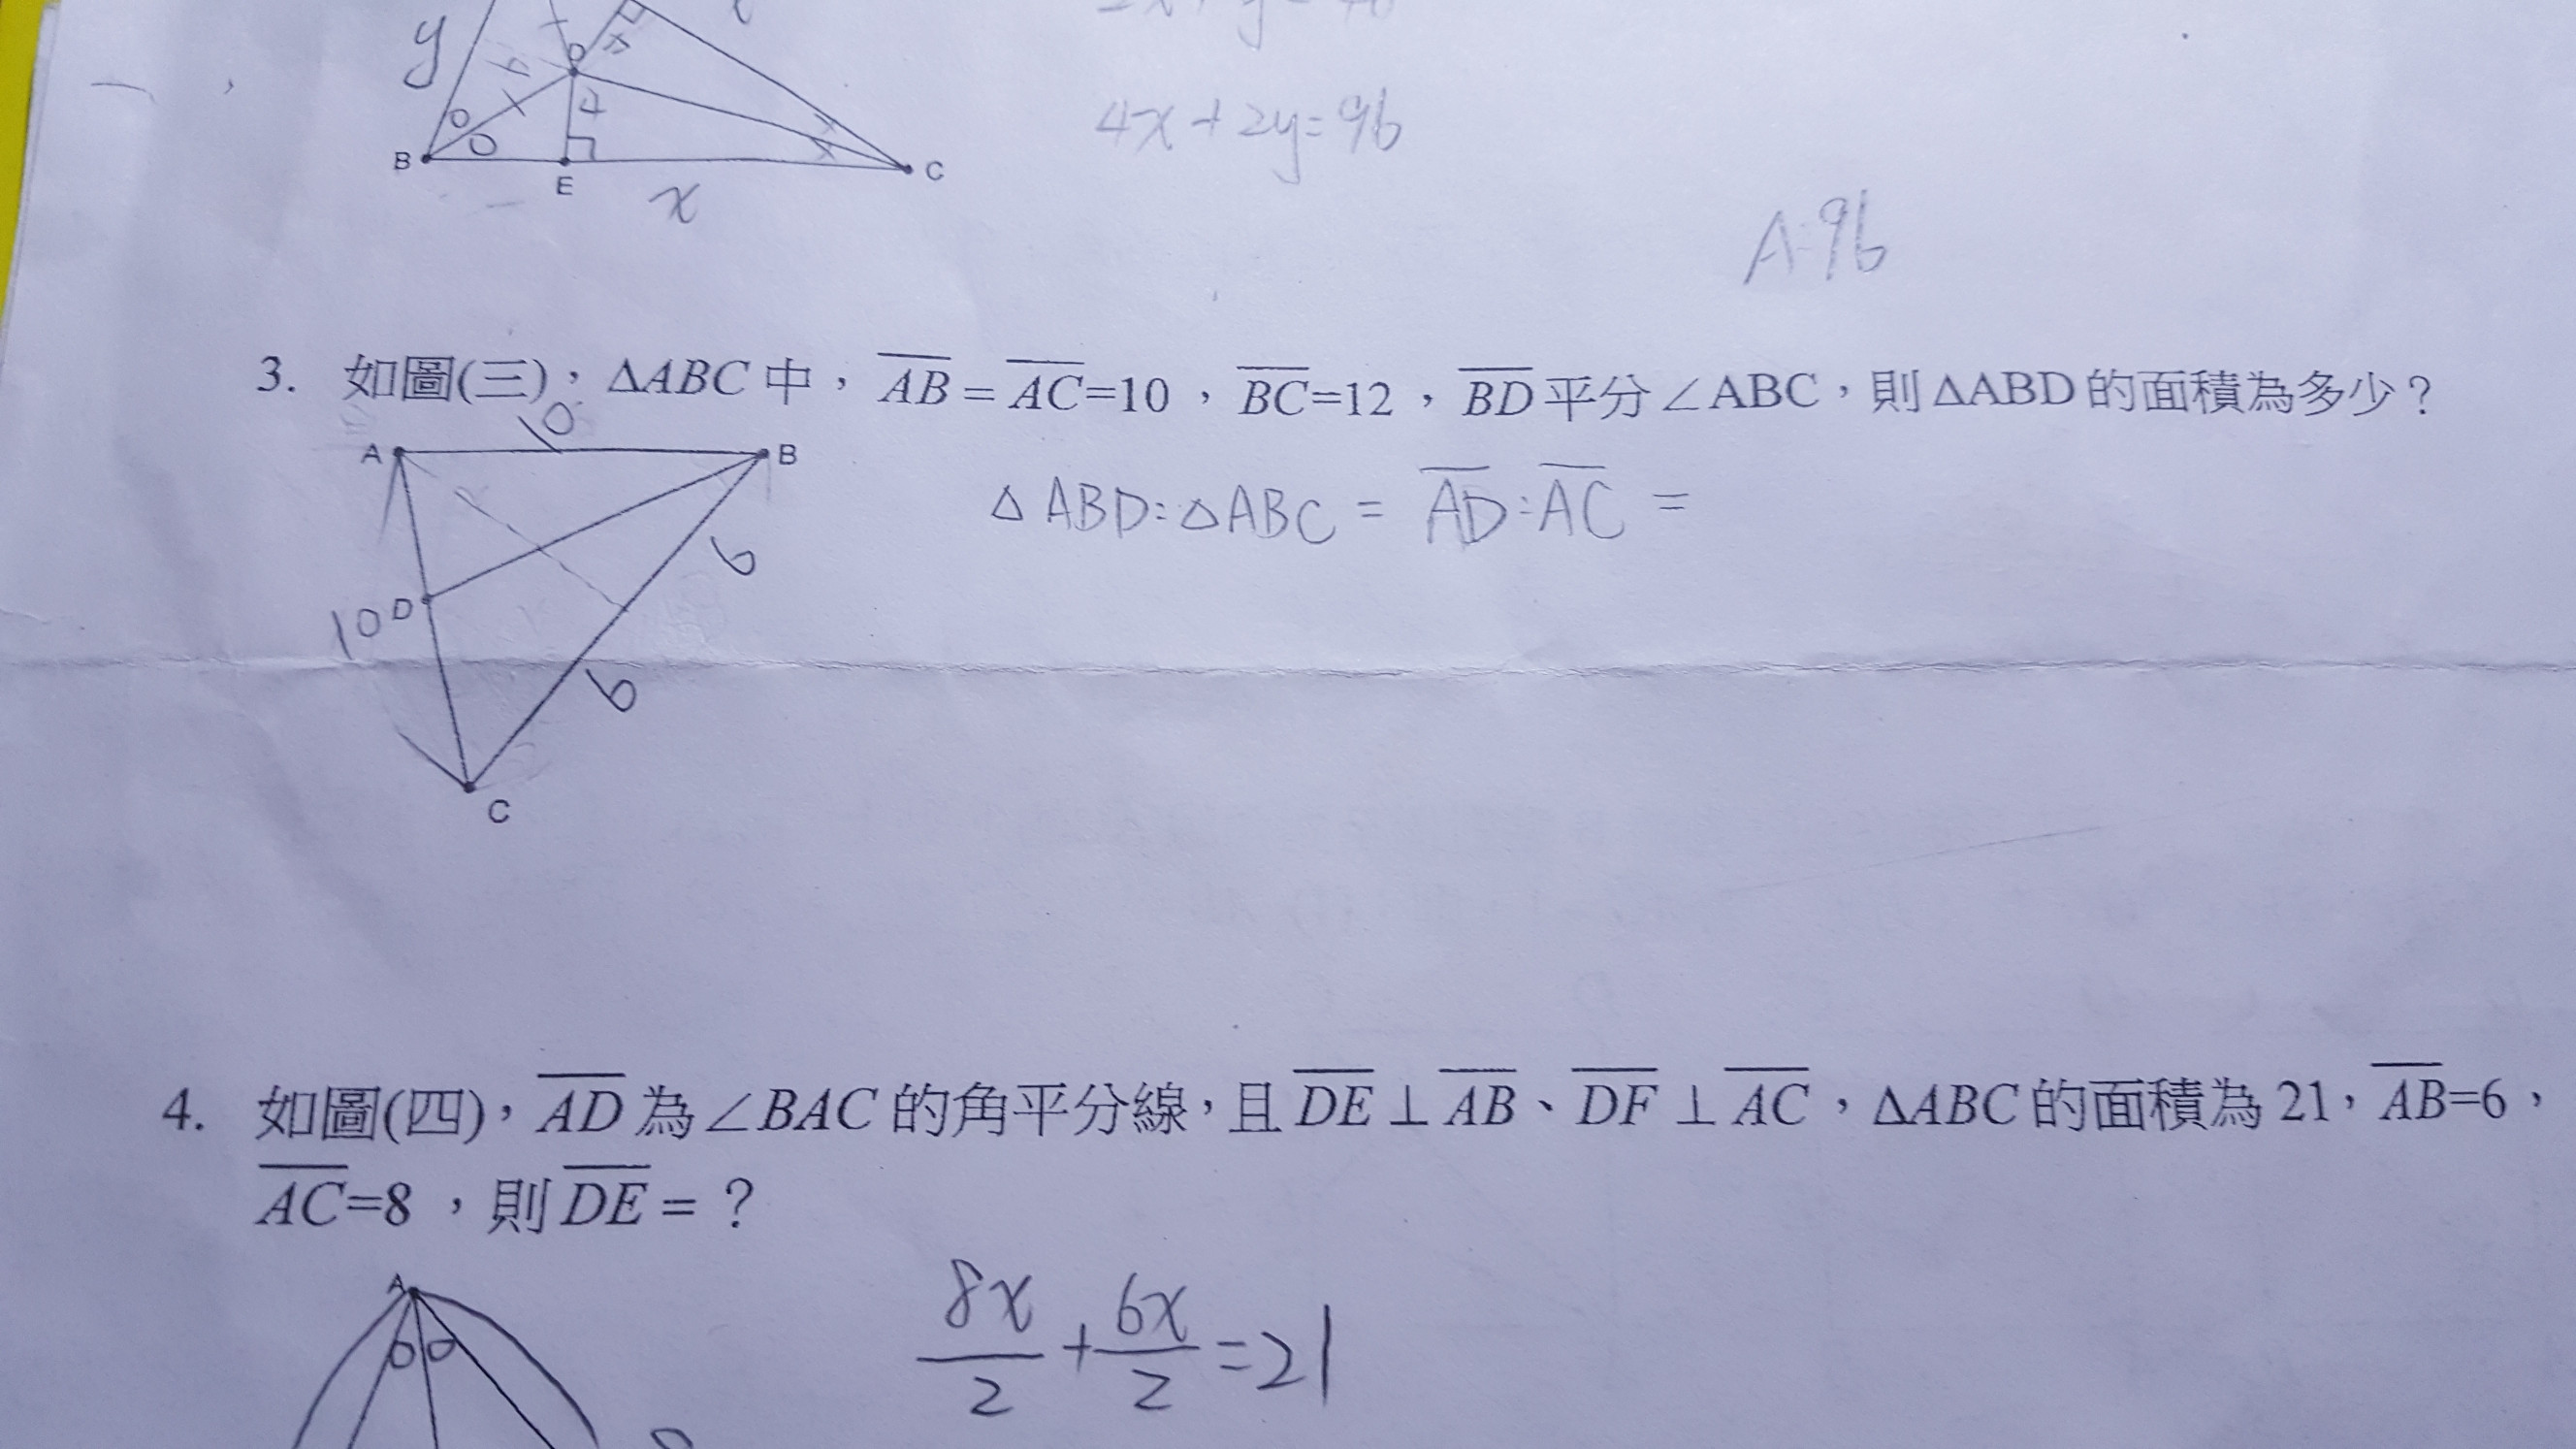 y
D
4
B
E
C
x
4x+2y=96
A:96
3. 如圖(三)，ΔABC中，AB=AC=10，BC=12，BD平分∠ABC，則ΔABD的面積為多少？
10
A
B
△ABD:△ABC=AD:AC=
6
10
D
6
C
4. 如圖(四)，AD為∠BAC的角平分線，且DE⊥AB、DF⊥AC，ΔABC的面積為21，AB=6，
AC=8，則DE=？
A
8x/2+6x/2=21